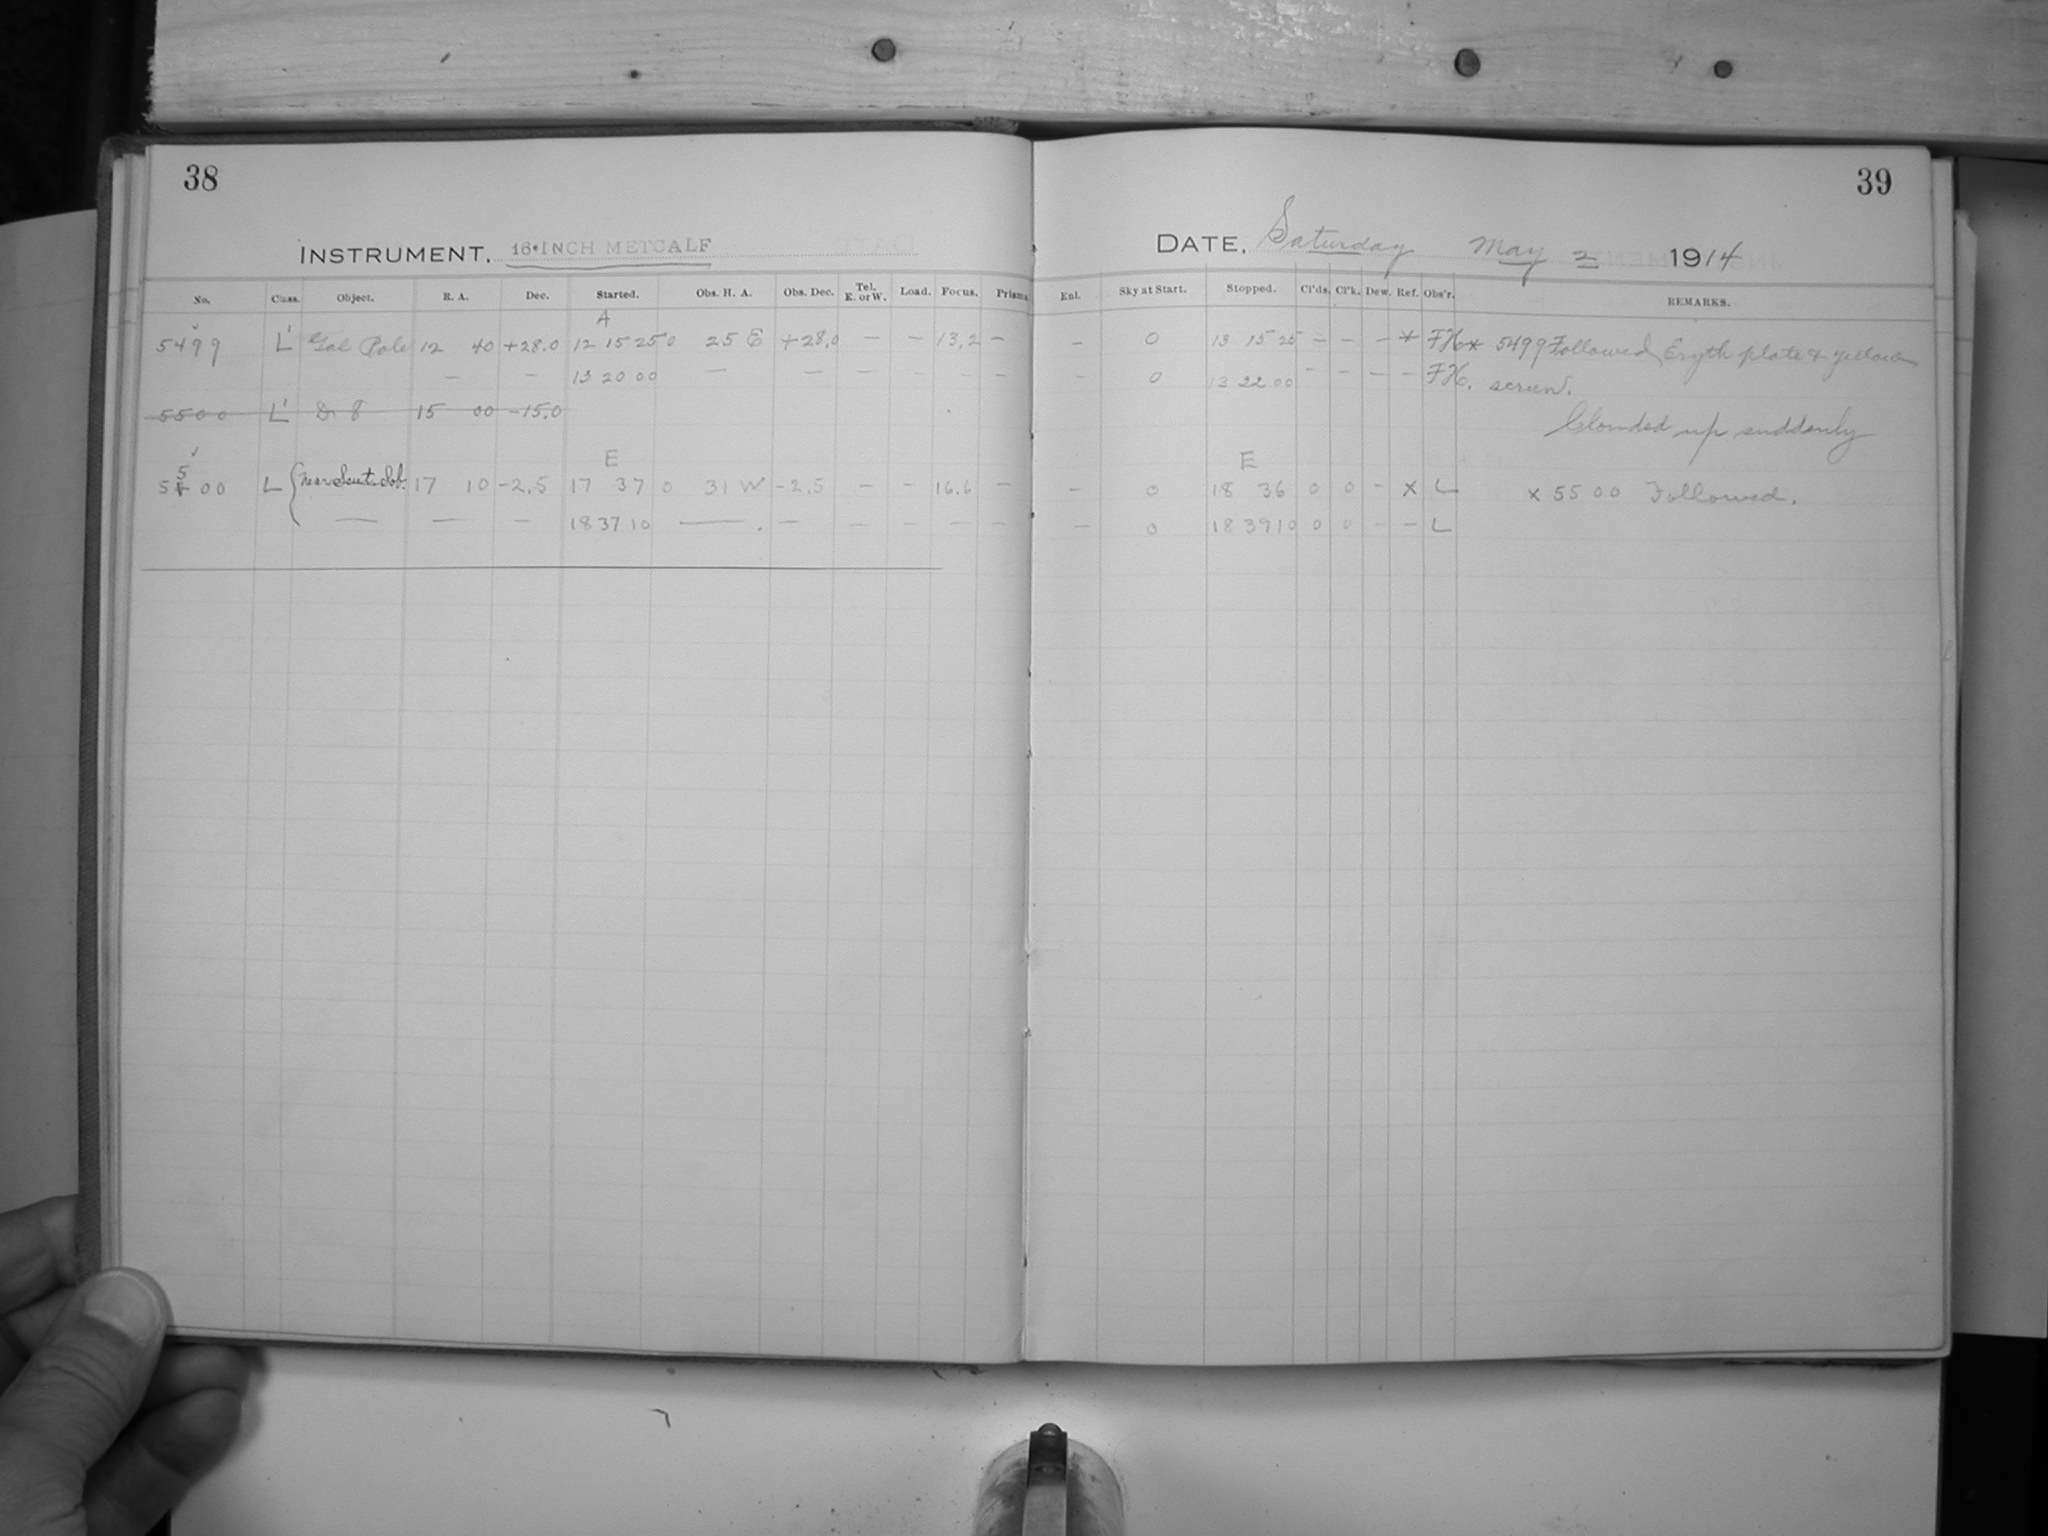 38
39
INSTRUMENT. 16-INCH METCALF
DATE. Saturday May 2 1914
No. Class. Object. R. A. Dec. Started. Obs. H. A. Obs. Dec. Tel. E. or W. Load. Focus. Prisms Enl. Sky at Start. Stopped. Cl'ds. Cl'k. Dew. Ref. Obs'r. REMARKS.
A
5499 L' Gal Pole 12 40 +28.0 12 15 25 0 25 E +28.0 — — 13,2 — — 0 13 15 25 — — — * FH * 5499 Followed, Eryth plate & yellow
— — 13 20 00 — — — — — — — 0 13 22 00 — — — — FH. screen.
5500 L' 8 15 00 -15.0
Clouded up suddenly
E E
5500 L 17 10 -2.5 17 37 0 31 W -2.5 — — 16.6 — — 0 18 36 0 0 — x L x 5500 Followed.
— — — 18 37 10 — — — — — — — 0 18 39 10 0 0 — — L